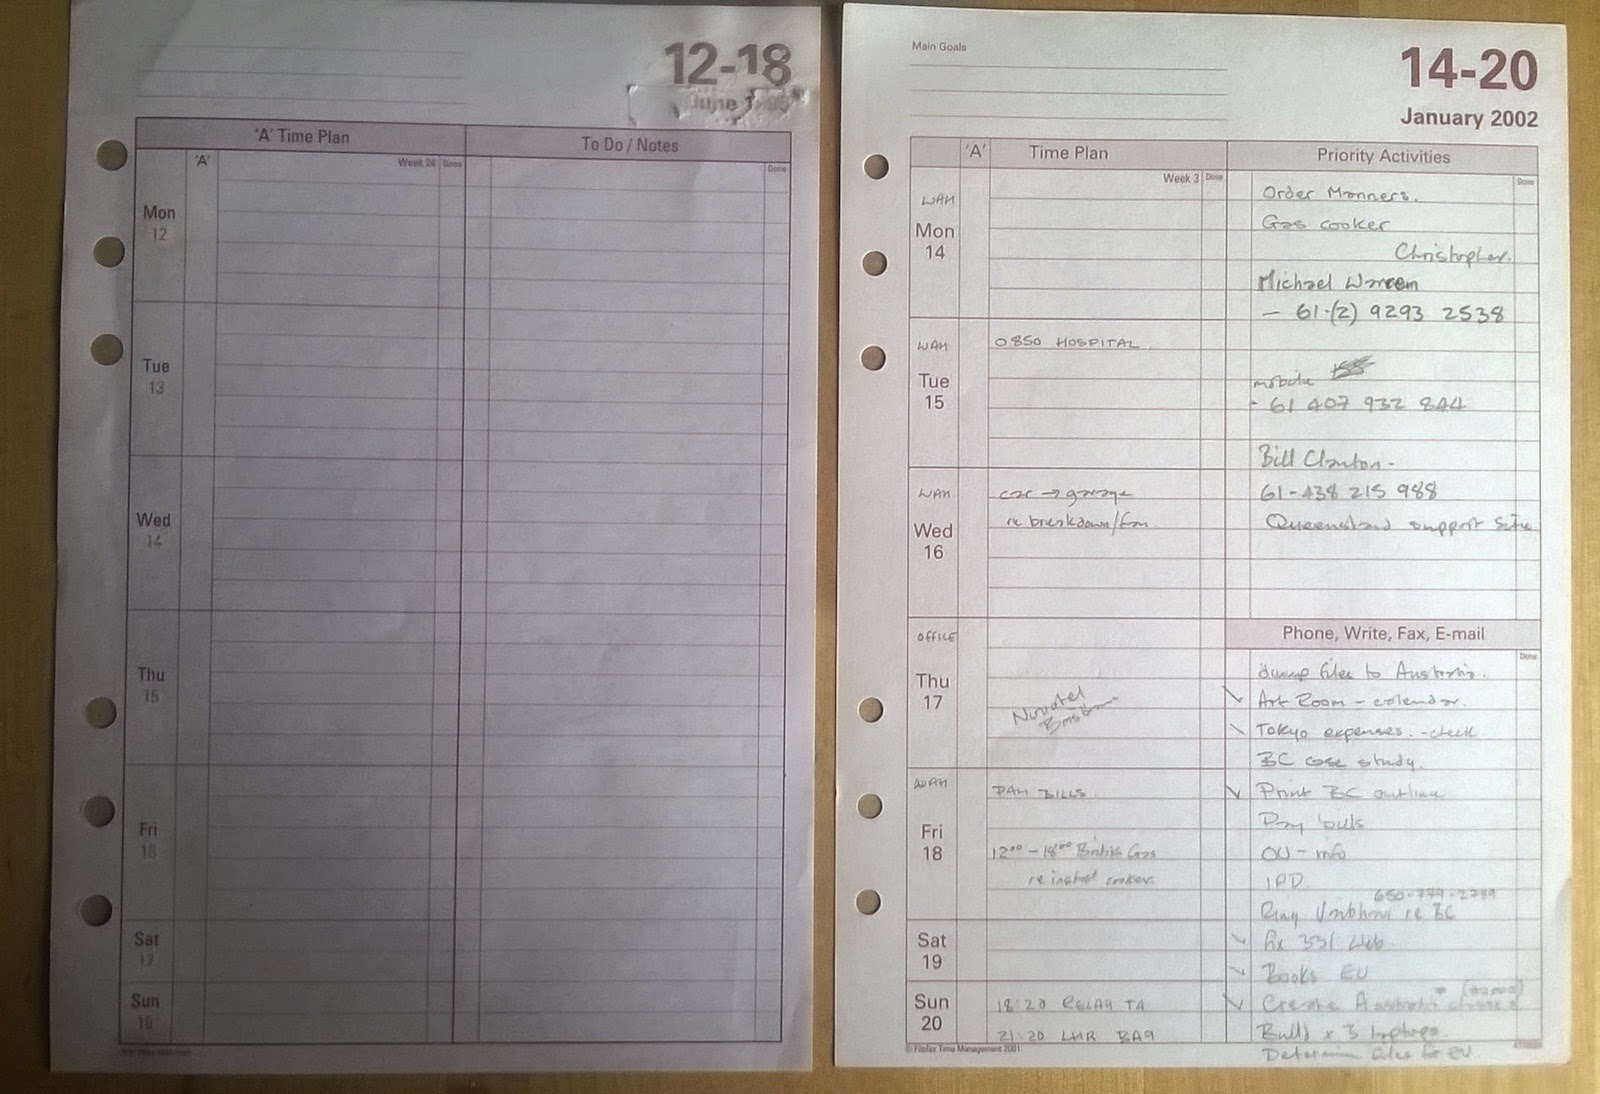 12-18
June 1995
'A' Time Plan
To Do / Notes
'A'
Week 24
Done
Done
Mon
12
Tue
13
Wed
14
Thu
15
Fri
16
Sat
17
Sun
18
Main Goals
14-20
January 2002
'A'
Time Plan
Priority Activities
Week 3
Done
Done
WAH
Mon
14
Order Manners.
Gas cooker
Christopher.
Michael Warren
- 61-(2) 9293 2538
WAH
Tue
15
0850 HOSPITAL
mobile
- 61 407 932 844
Bill Clanton-
61-438 215 988
Queensland support
WAH
Wed
16
car → garage
re breakdown/
Phone, Write, Fax, E-mail
Done
OFFICE
Thu
17
Novotel
Brisbane
dump files to Australia.
Art Room - calendar.
Tokyo expenses. -check
BC case study.
WAH
Fri
18
PAY BILLS.
12⁰⁰ - 18⁰⁰ British Gas
re install cooker.
Print BC outline
Pay bills
OU - info
IPD.
650-779-2789
Ring Vaibhavi re BC
Sat
19
fix 331 Web
Books EU
Sun
20
18:20 RELAY TA
21:20 LHR BA9
Create Australia
Build x 3 laptops.
Determine files for EU
© Filofax Time Management 2001